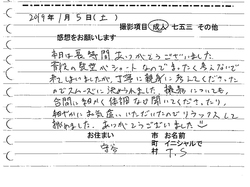 2019年1月5日(土)
撮影項目 成人 七五三 その他
感想をお願いします
本日は長時間ありがとうございました
前日の髪型がショートなのであまり考えないで
来てしまいましたが、丁寧に親身に考えてくださった
のでスムーズに決められました。撮影についても
合間に細かく体調など聞いてくださったり
細やかにお気遣いいただいたのでリラックスして
臨めました。ありがとうございました
お住まい 市 町 村
お名前 イニシャルで
守谷
T.S